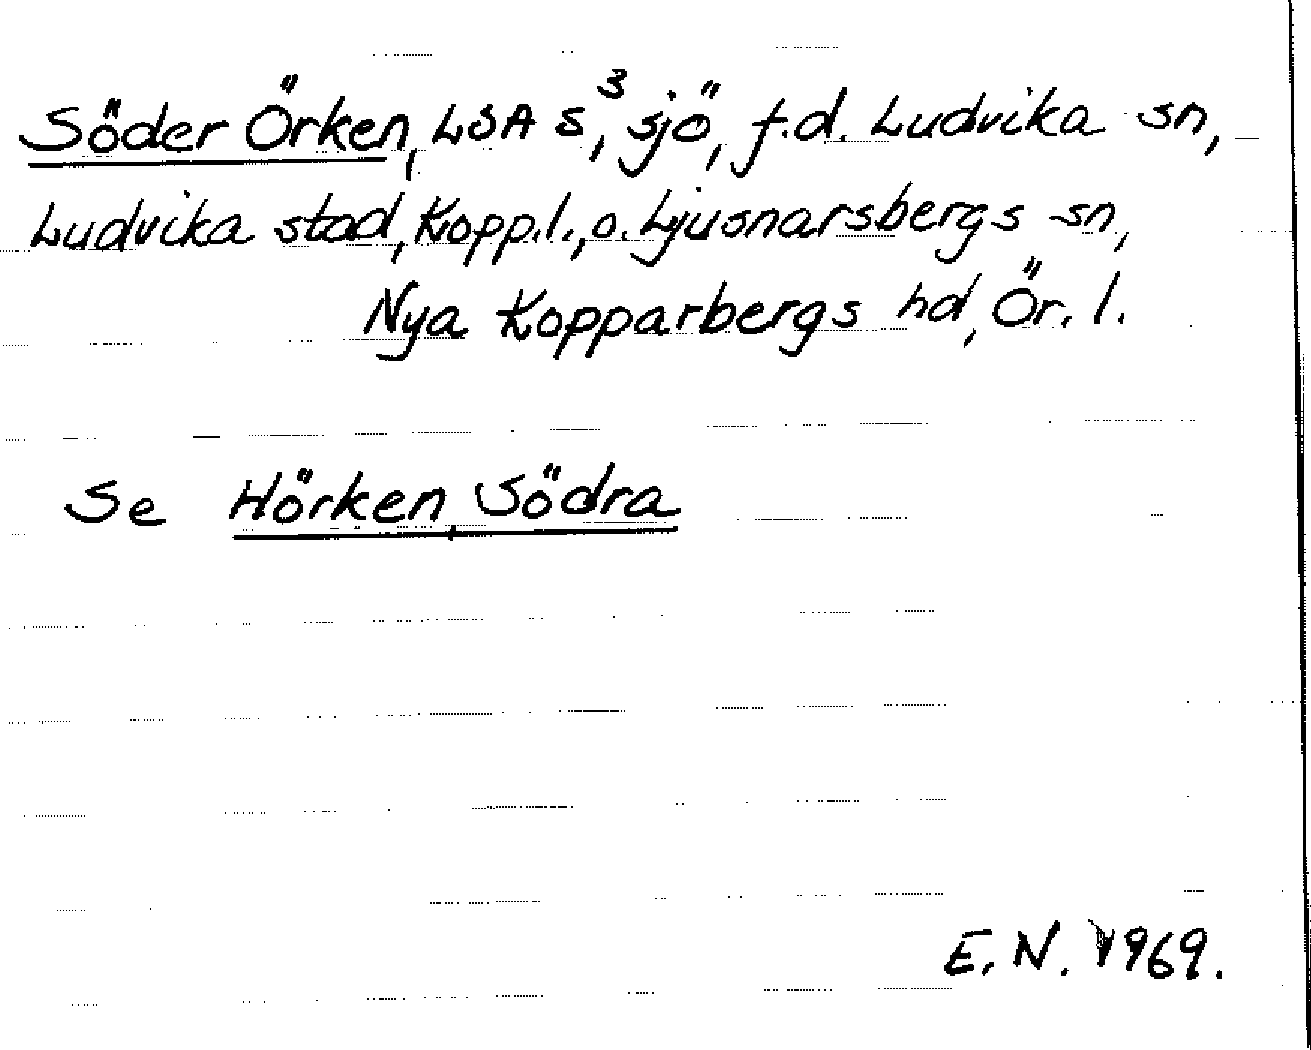 Söder Örken, LSA S³, sjö, f.d. Ludvika sn,
Ludvika stad, Kopp.l., o. Ljusnarsbergs sn,
Nya Kopparbergs hd, Ör. l.
Se Hörken, Södra
E. N. 1969.